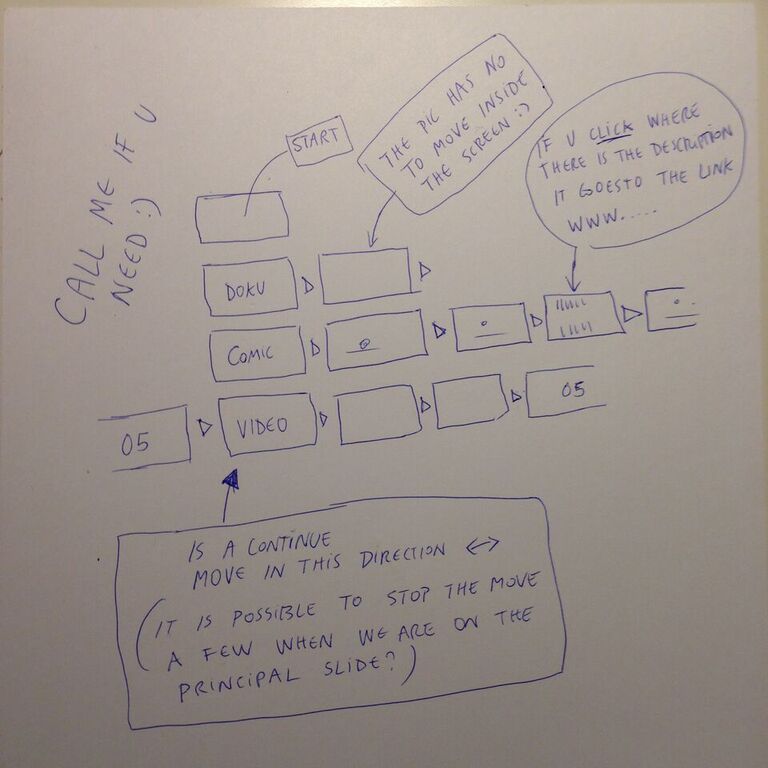 CALL ME IF U
NEED :)
START
THE PIC HAS NO
TO MOVE INSIDE
THE SCREEN :)
IF U CLICK WHERE
THERE IS THE DESCRIPTION
IT GOES TO THE LINK
WWW.....
DOKU
COMIC
05
VIDEO
05
IS A CONTINUE
MOVE IN THIS DIRECTION ↔
(IT IS POSSIBLE TO STOP THE MOVE
A FEW WHEN WE ARE ON THE
PRINCIPAL SLIDE?)